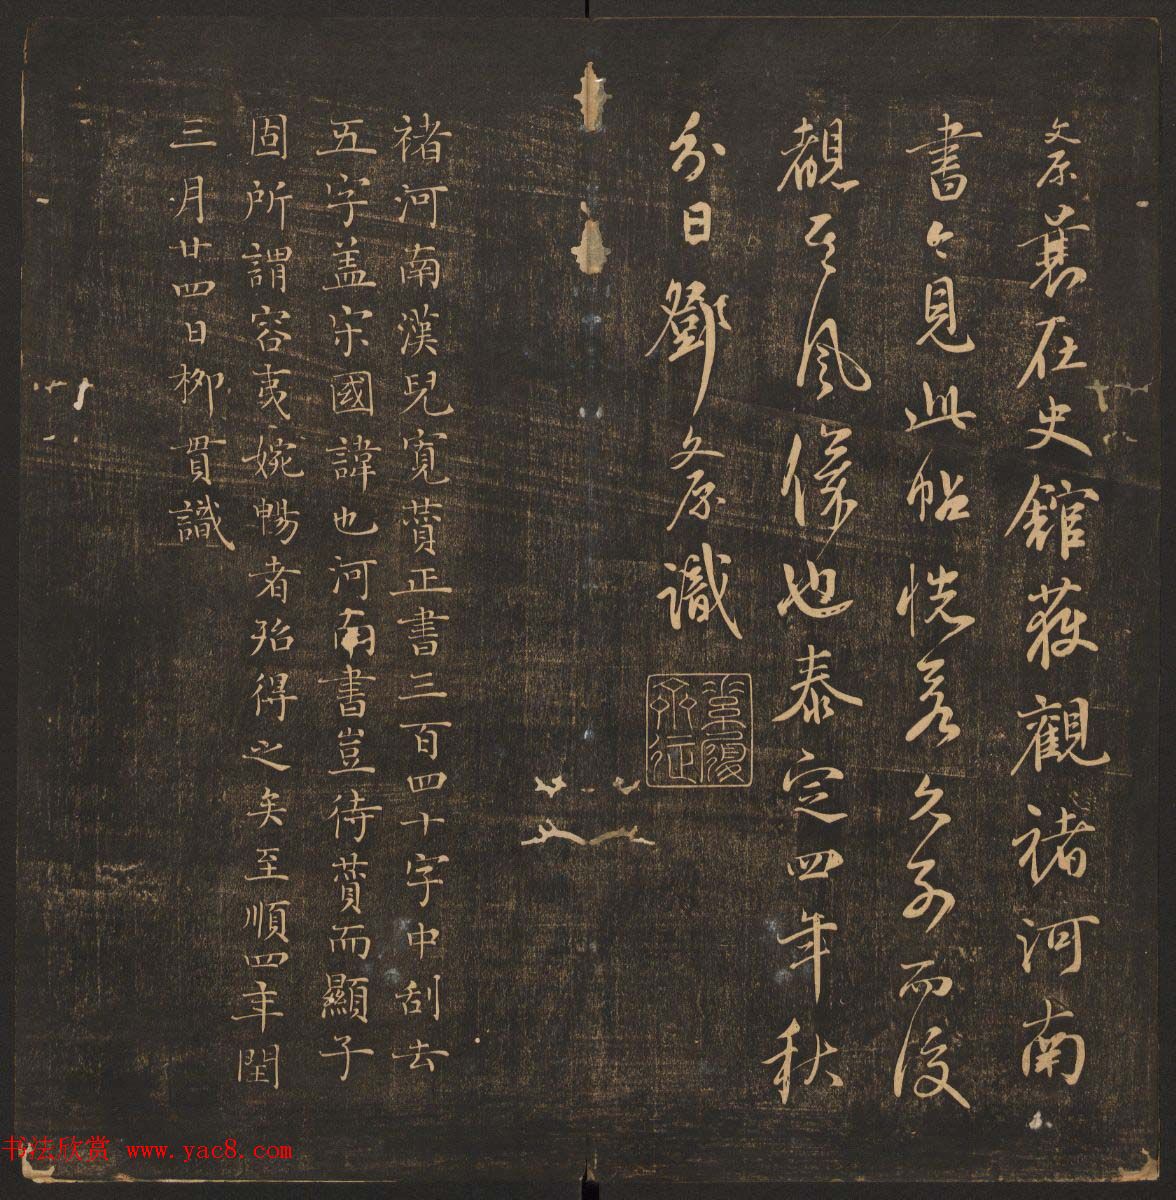 文原曩在史館獲觀褚河南
書今見此帖恍若久別而復
覩其風儀也泰定四年秋
分日鄧文原識
褚河南漢兒寬賛正書三百四十字中刮去
五字盖宋國諱也河南書豈待賛而顯子
固所謂容夷婉暢者殆得之矣至順四年閏
三月廿四日柳貫識
书法欣赏 www.yac8.com